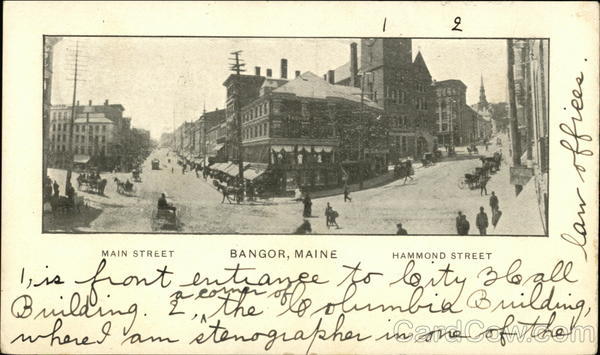 1 2
MAIN STREET BANGOR, MAINE HAMMOND STREET
1, is front entrance to City Hall
Building. 2, a corner of the Columbia Building,
where I am stenographer in one of the
law offices.
CardCow.com